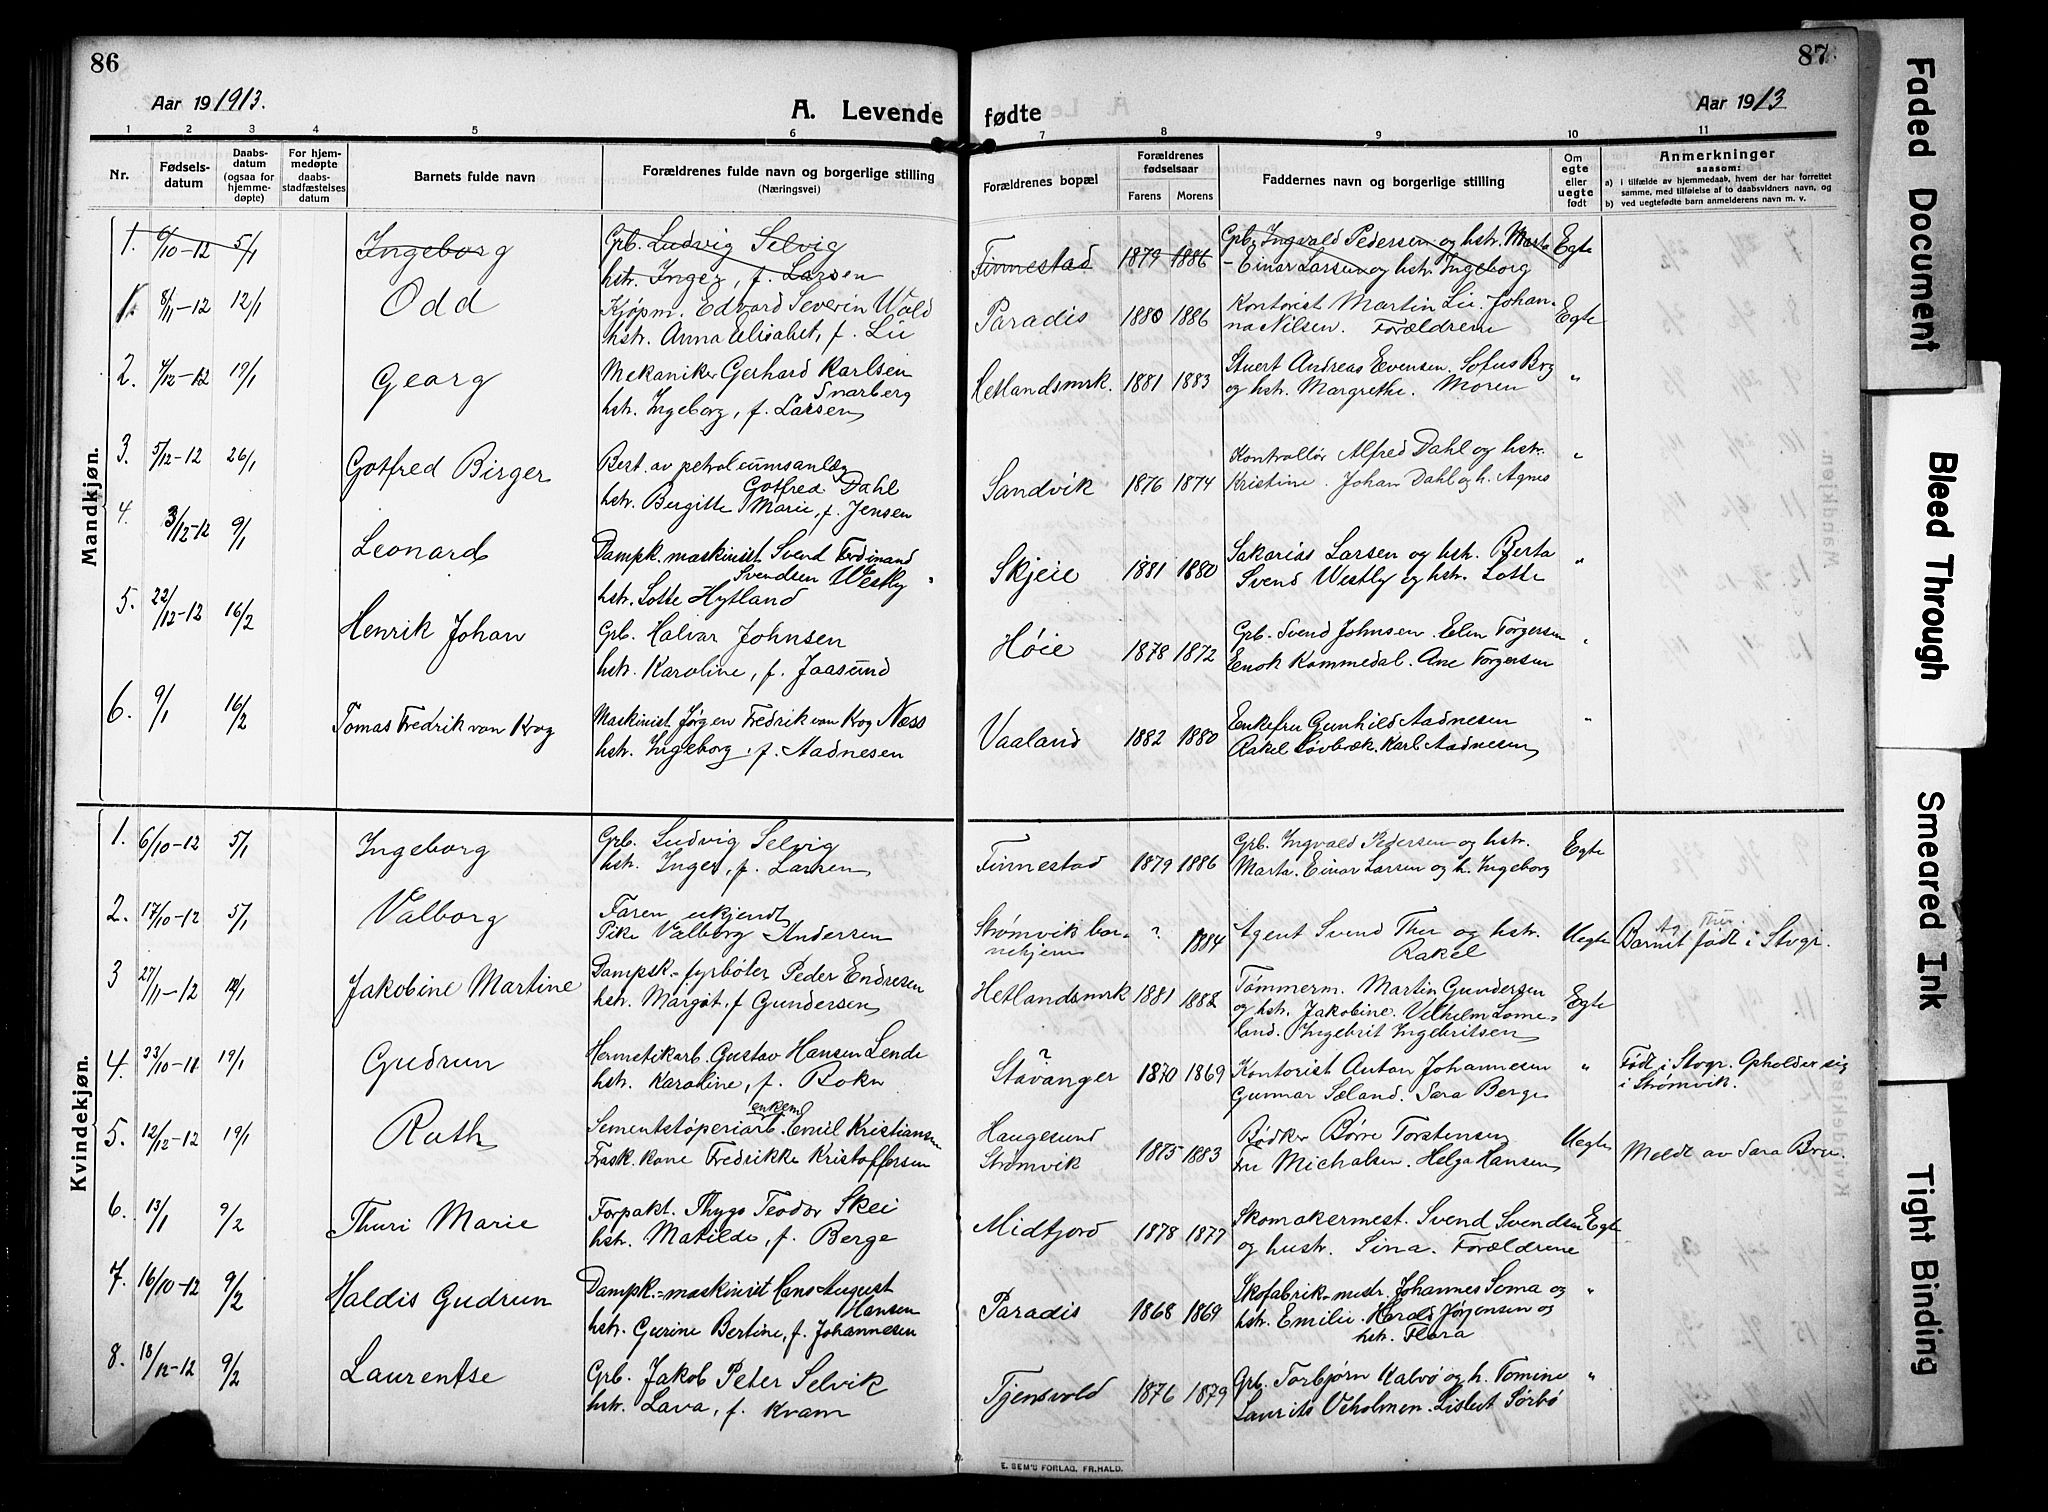 86
Aar 19 1913.
A. Levende
fødte
87
Aar 1913
1 2 3 4 5 6 7 8 9 10 11
Nr.
Fødsels-
datum
Daabs-
datum
(ogsaa for
hjemme-
døpte)
For hjem-
medøpte
daabs-
stadfæstelses
datum
Barnets fulde navn
Forældrenes fulde navn og borgerlige stilling
(Næringsvei)
Forældrenes bopæl
Forældrenes
fødselsaar
Farens Morens
Faddernes navn og borgerlige stilling
Om
egte
eller
uegte
født
Anmerkninger
saasom:
a) i tilfælde av hjemmedaab, hvem der har forrettet
samme, med tilføielse af to daabsvidners navn, og
b) ved uegtefødte barn anmelderens navn m. v.
Mandkjøn.
1. 6/10-12 5/1 Ingeborg Grb. Ludvig Selvig Finnestad 1879 1886 Grb. Ingvald Pedersen og hstr. Marta Egte
hstr. Inger, f. Larsen - Einar Larsen og hstr. Ingeborg
1. 8/11-12 12/1 Odd Kjøpm. Edvard Severin Wold Paradis 1880 1886 Kontorist Martin Lie. Johan- Egte
hstr. Anna Elisabet, f. Lie na Nilsen. Forældrene
2. 4/12-12 19/1 Georg Mekaniker Gerhard Karlsen Hetlandsmrk. 1881 1883 Stuert Andreas Evensen. Sofus Brg "
Snarberg
hstr. Ingeborg, f. Larsen og hstr. Margrethe. Moren
3. 5/12-12 26/1 Gotfred Birger Best. av petroleumsanlæg Sandvik 1876 1874 Kontrollør Alfred Dahl og hstr. "
Gotfred Dahl
hstr. Birgitte Marie, f. Jensen Kristine. Johan Dahl og h. Agnes
4. 3/12-12 9/1 Leonard Dampk. maskinist Svend Ferdinand Skjeie 1881 1880 Sakarias Larsen og hstr. Berta "
Svendsen Westly
hstr. Lotte Hytland Svend Westly og hstr. Lotte
5. 22/12-12 16/2 Henrik Johan Grb. Halvar Johnsen Høie 1878 1872 Grb. Svend Johnsen. Elen Torgersen "
hstr. Karoline, f. Jaasund Enok Kommedal. Ane Torgersen
6. 9/1 16/2 Tomas Fredrik von Krog Maskinist Jørgen Fredrik von Krog Næss Vaaland 1882 1880 Enkefru Gunhild Aadnesen "
hstr. Ingeborg, f. Aadnesen Rakel Løvbræk. Karl Aadnesen
Kvindekjøn.
1. 6/10-12 5/1 Ingeborg Grb. Ludvig Selvig Finnestad 1879 1886 Grb. Ingvald Pedersen og hstr. Egte
hstr. Inger, f. Larsen Marta. Einar Larsen og h. Ingeborg
2. 17/10-12 5/1 Valborg Faren ukjendt Strømvik bar- ? 1884 Agent Svend Thu og hstr. Uegte Barnet født i Stvgr.
Ag. Thu.
Pike Valborg Andersen nehjem Rakel
3 27/11-12 12/1 Jakobine Martine Dampsk.-fyrbøter Peder Endresen Hetlandsmrk 1881 1882 Tømmerm. Martin Gundersen Egte
hstr. Margit, f Gundersen og hstr. Jakobine. Vilhelm Lome-
land. Ingebrit Ingebritsen
4. 23/10-11 19/1 Gudrun Hermetikarb. Gustav Hansen Lende Stavanger ? 1870 1869 Kontorist Anton Johannesen " Født i Stvgr. Opholder sig
hstr. Karoline, f. Bokn Gunnar Sæland. Sara Berge i Strømvik.
5. 12/12-12 19/1 Ruth Sementstøperiarb. enkem Emil Kristiansen Haugesund 1875 1883 Bødker Børre Torstensen Uegte Meldt av Sara Bru.
Frask. kone Fredrikke Kristoffersen Strømvik Fru Michalsen. Helga Hansen
6. 13/1 9/2 Thuri Marie Forpakt. Thygo Teodor Skei Midtjord 1878 1877 Skomakermest. Svend Svendsen Egte
hstr. Matilde, f. Berge og hustr. Sina. Forældrene
7. 16/10-12 9/2 Haldis Gudrun Dampk.-maskinist Hans August Paradis 1868 1869 Skofabrik-mestr. Johannes Soma og "
Hansen
hstr. Gurine Bertine, f. Johannesen hstr. Emilie. Harald Jørgensen og
hstr. Flora
8. 18/12-12 9/2 Laurentse Grb. Jakob Peter Selvik Tjensvold 1876 1879 Grb. Torbjørn Kalvø og h. Tomine "
hstr. Lava, f. Kvam Laurits Veholmen. Lisbet Sørbø
E. SEM'S FORLAG, FR.HALD.
Faded Document
Bleed Through
Smeared Ink
Tight Binding